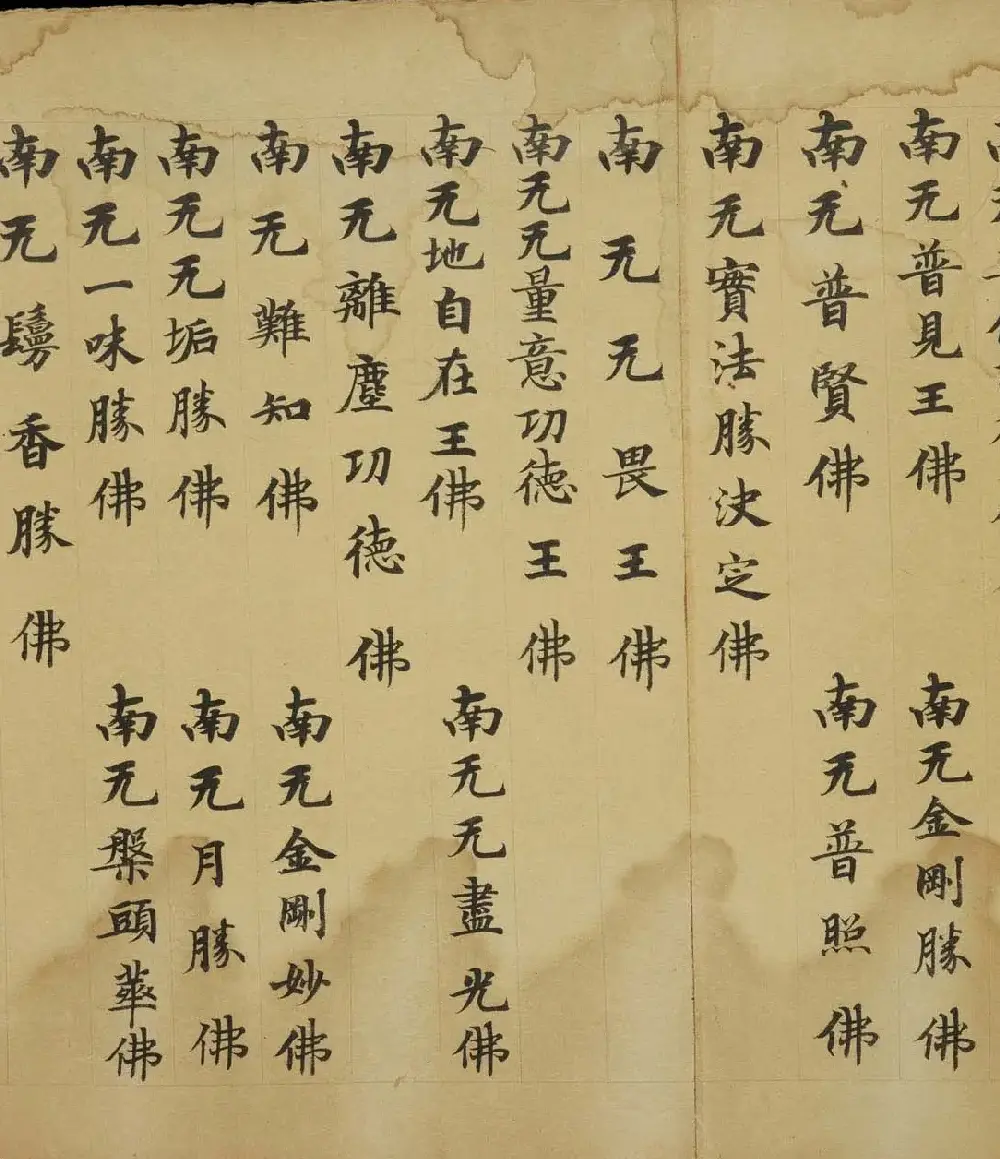 南无普見王佛 南无金剛勝佛
南无普賢佛 南无普照佛
南无實法勝決定佛
南无无畏王佛
南无无量意功德王佛
南无地自在王佛 南无无盡光佛
南无離塵功德佛
南无難知佛 南无金剛妙佛
南无无垢勝佛 南无月勝佛
南无一味勝佛 南无槃頭華佛
南无鬘香勝佛